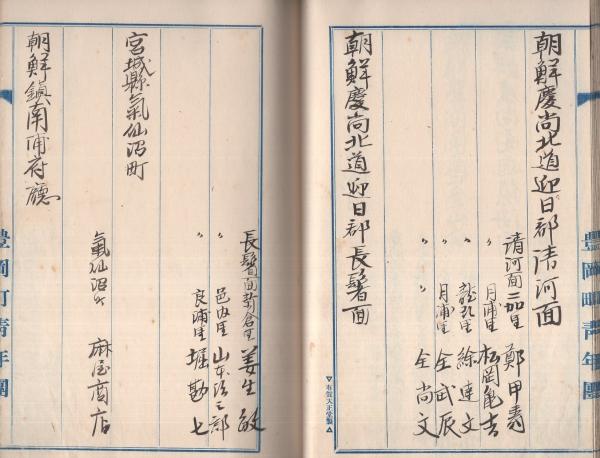 朝鮮慶尚北道迎日郡清河面
清河面二加里 鄭甲寿
〃 月浦里 松岡亀吉
〃 龍頭里 徐連文
〃 月浦里 全武辰
〃 〃 全尚文
朝鮮慶尚北道迎日郡長鬐面
長鬐面新倉里 姜生敏
〃 邑内里 山本弥三郎
〃 良浦里 堀勘七
宮城縣氣仙沼町
氣仙沼町 麻屋商店
朝鮮鎮南浦府廳
豊岡町青年團
豊岡町青年團
▽有賀大正堂製△